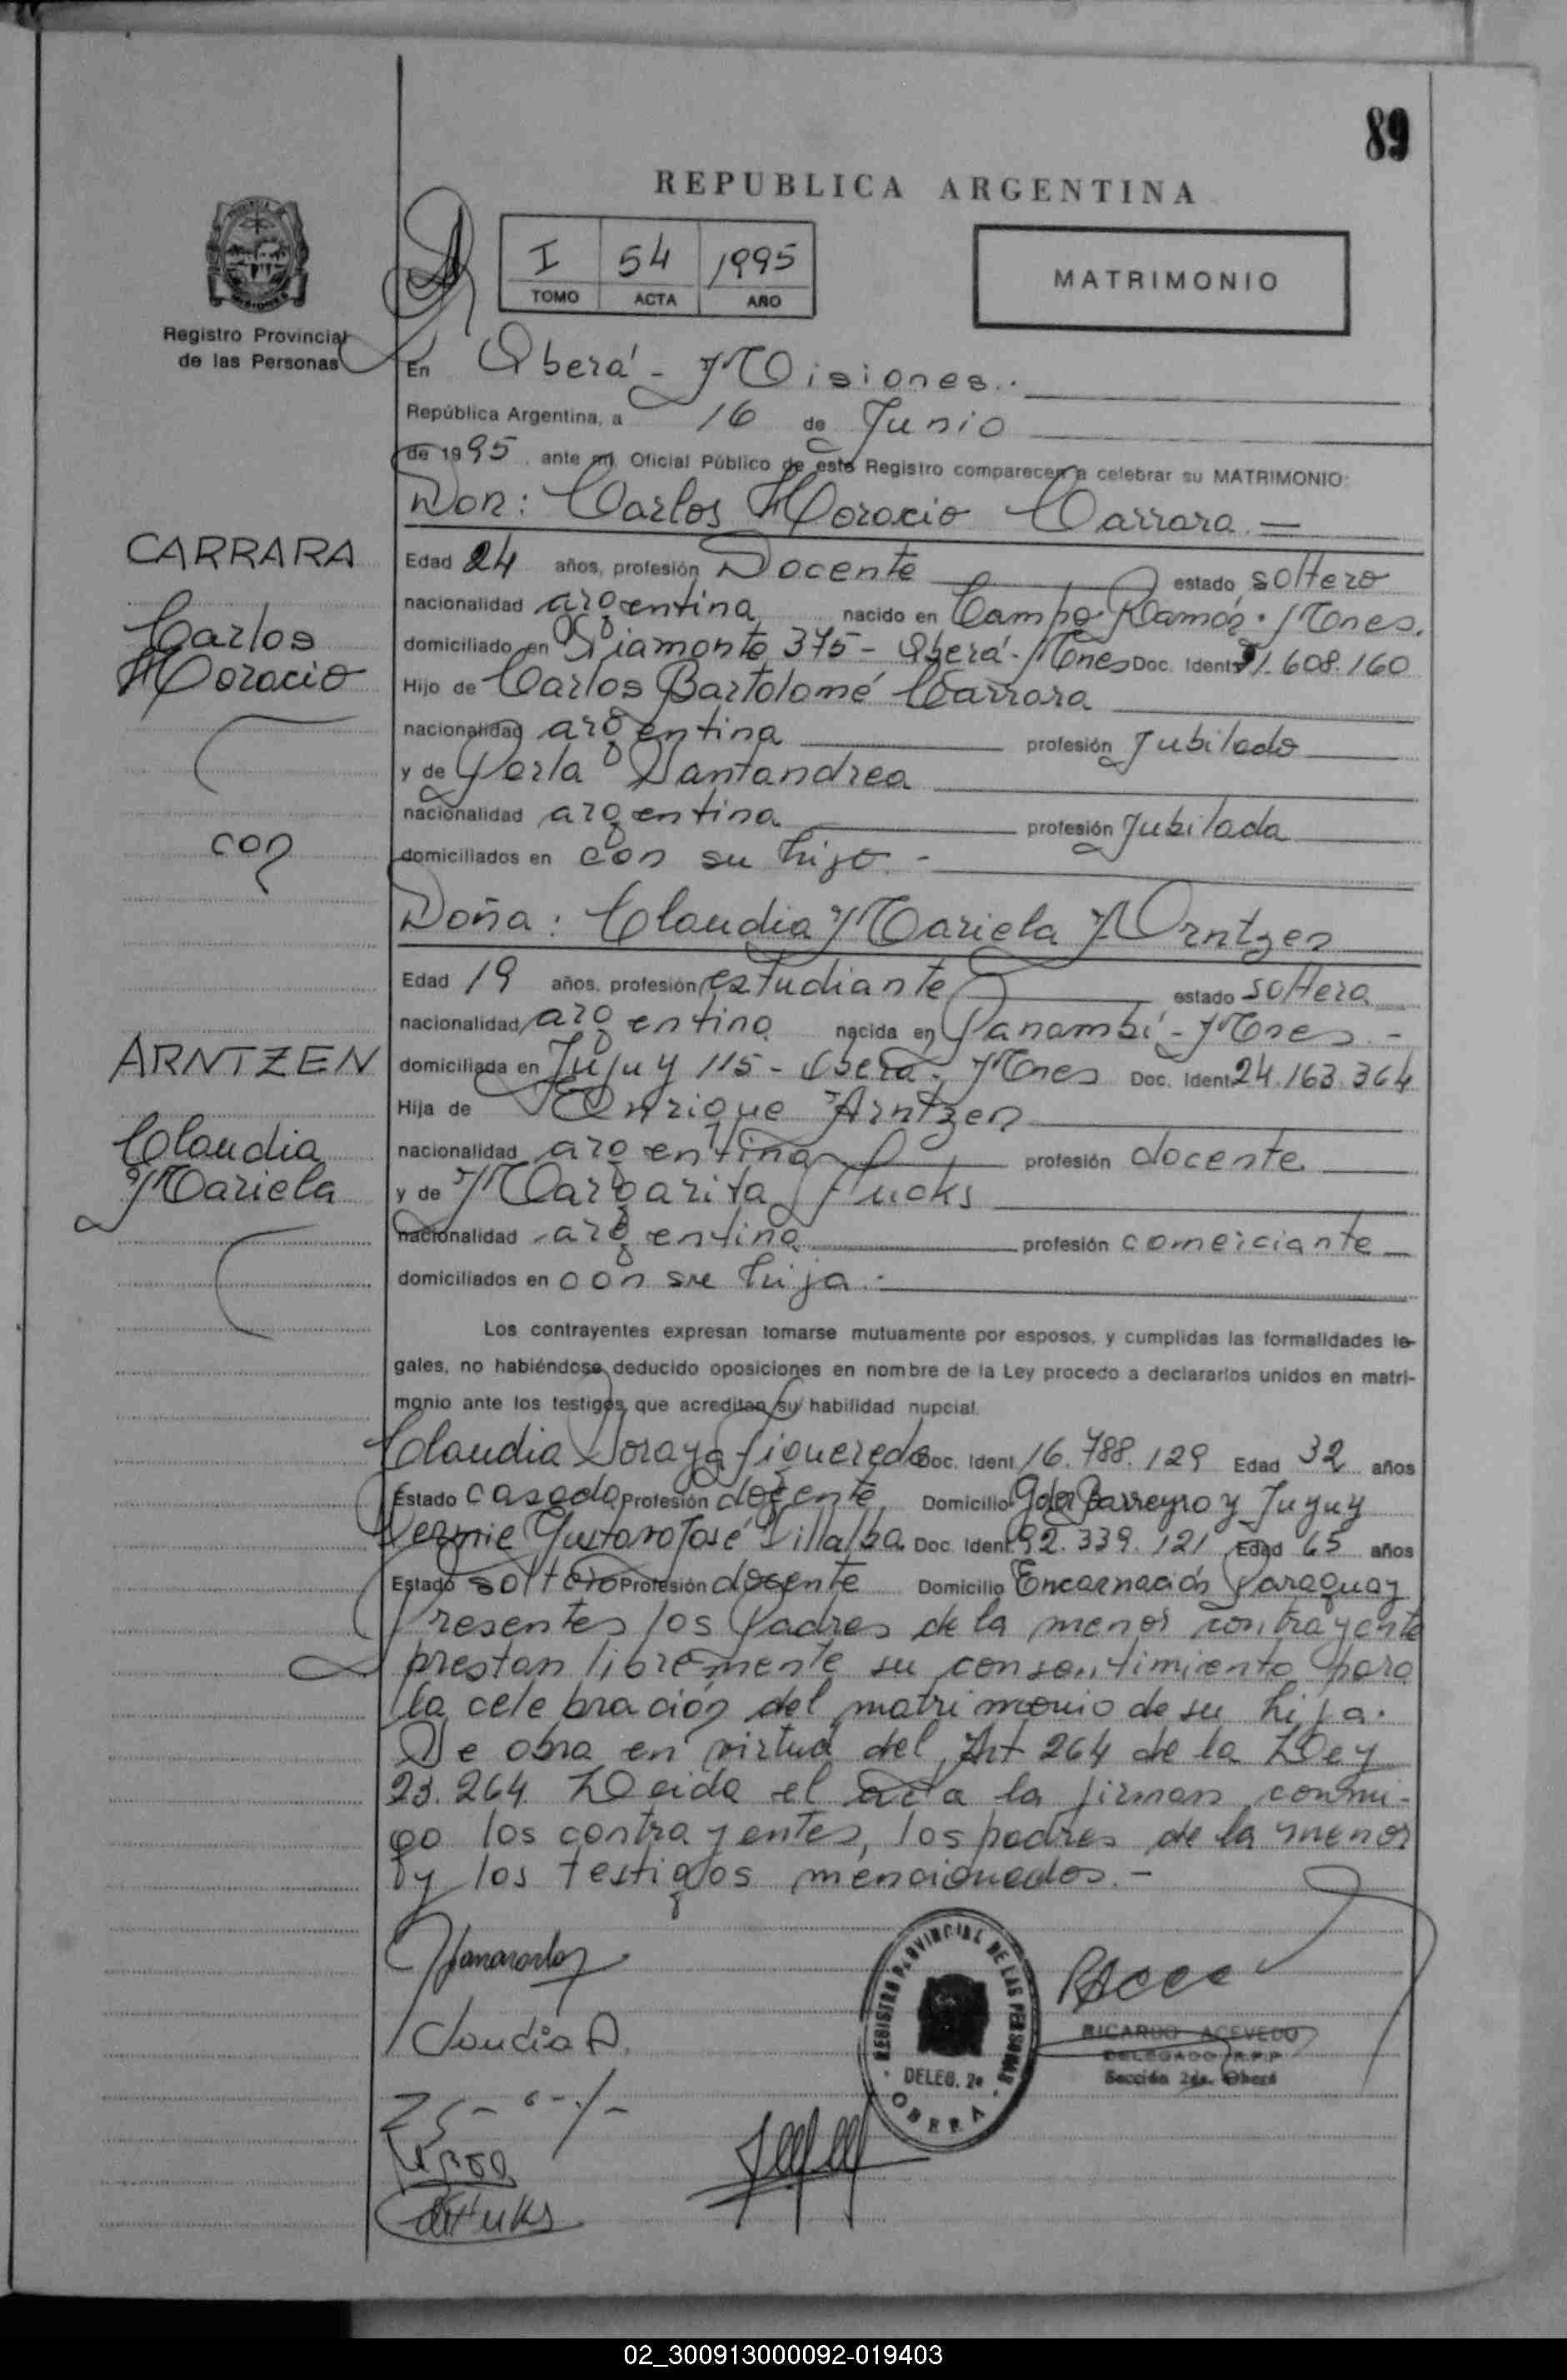 89
REPUBLICA ARGENTINA
I 54 1995
TOMO ACTA AÑO
MATRIMONIO
Registro Provincial
de las Personas
En Oberá - Misiones.
República Argentina, a 16 de Junio
de 1995, ante mí, Oficial Público de este Registro comparecen a celebrar su MATRIMONIO:
Don: Carlos Horacio Carrara =
CARRARA
Carlos
Horacio
con
Edad 24 años, profesión Docente estado soltero
nacionalidad argentina nacido en Campo Ramón. Mnes.
domiciliado en Diamante 375 - Oberá - Mnes Doc. Ident. 21.608.160
Hijo de Carlos Bartolomé Carrara
nacionalidad argentina profesión Jubilado
y de Perla Santandrea
nacionalidad argentina profesión Jubilada
domiciliados en con su hijo. -
Doña: Claudia Mariela Arntzen
ARNTZEN
Claudia
Mariela
Edad 19 años, profesión estudiante estado soltera
nacionalidad argentina nacida en Panambí - Mnes. -
domiciliada en Jujuy 115 - Oberá - Mnes Doc. Ident. 24.163.364
Hija de Enrique Arntzen
nacionalidad argentina profesión docente
y de Margarita Fucks
nacionalidad argentina profesión comerciante
domiciliados en con su hija. -
Los contrayentes expresan tomarse mutuamente por esposos, y cumplidas las formalidades le-
gales, no habiéndose deducido oposiciones en nombre de la Ley procedo a declararlos unidos en matri-
monio ante los testigos que acreditan su habilidad nupcial.
Claudia Soraya Figueredo Doc. Ident. 16.788.129 Edad 32 años
Estado casada Profesión docente Domicilio Gdor Barreyro y Jujuy
Gustavo José Villalba Doc. Ident. 92.339.121 Edad 65 años
Estado soltero Profesión docente Domicilio Encarnación Paraguay
Presentes los Padres de la menor contrayente
prestan libremente su consentimiento para
la celebración del matrimonio de su hija.
Se obra en virtud del Art 264 de la Ley
23.264 Leida el acta la firman conmi-
go los contrayentes, los padres de la menor
y los testigos mencionados. -
Claudia A.
REGISTRO PROVINCIAL DE LAS PERSONAS
DELEG. 2ª
OBERA
RICARDO ACEVEDO
DELEGADO R.P.P
Sección 2da. Oberá
02_300913000092-019403